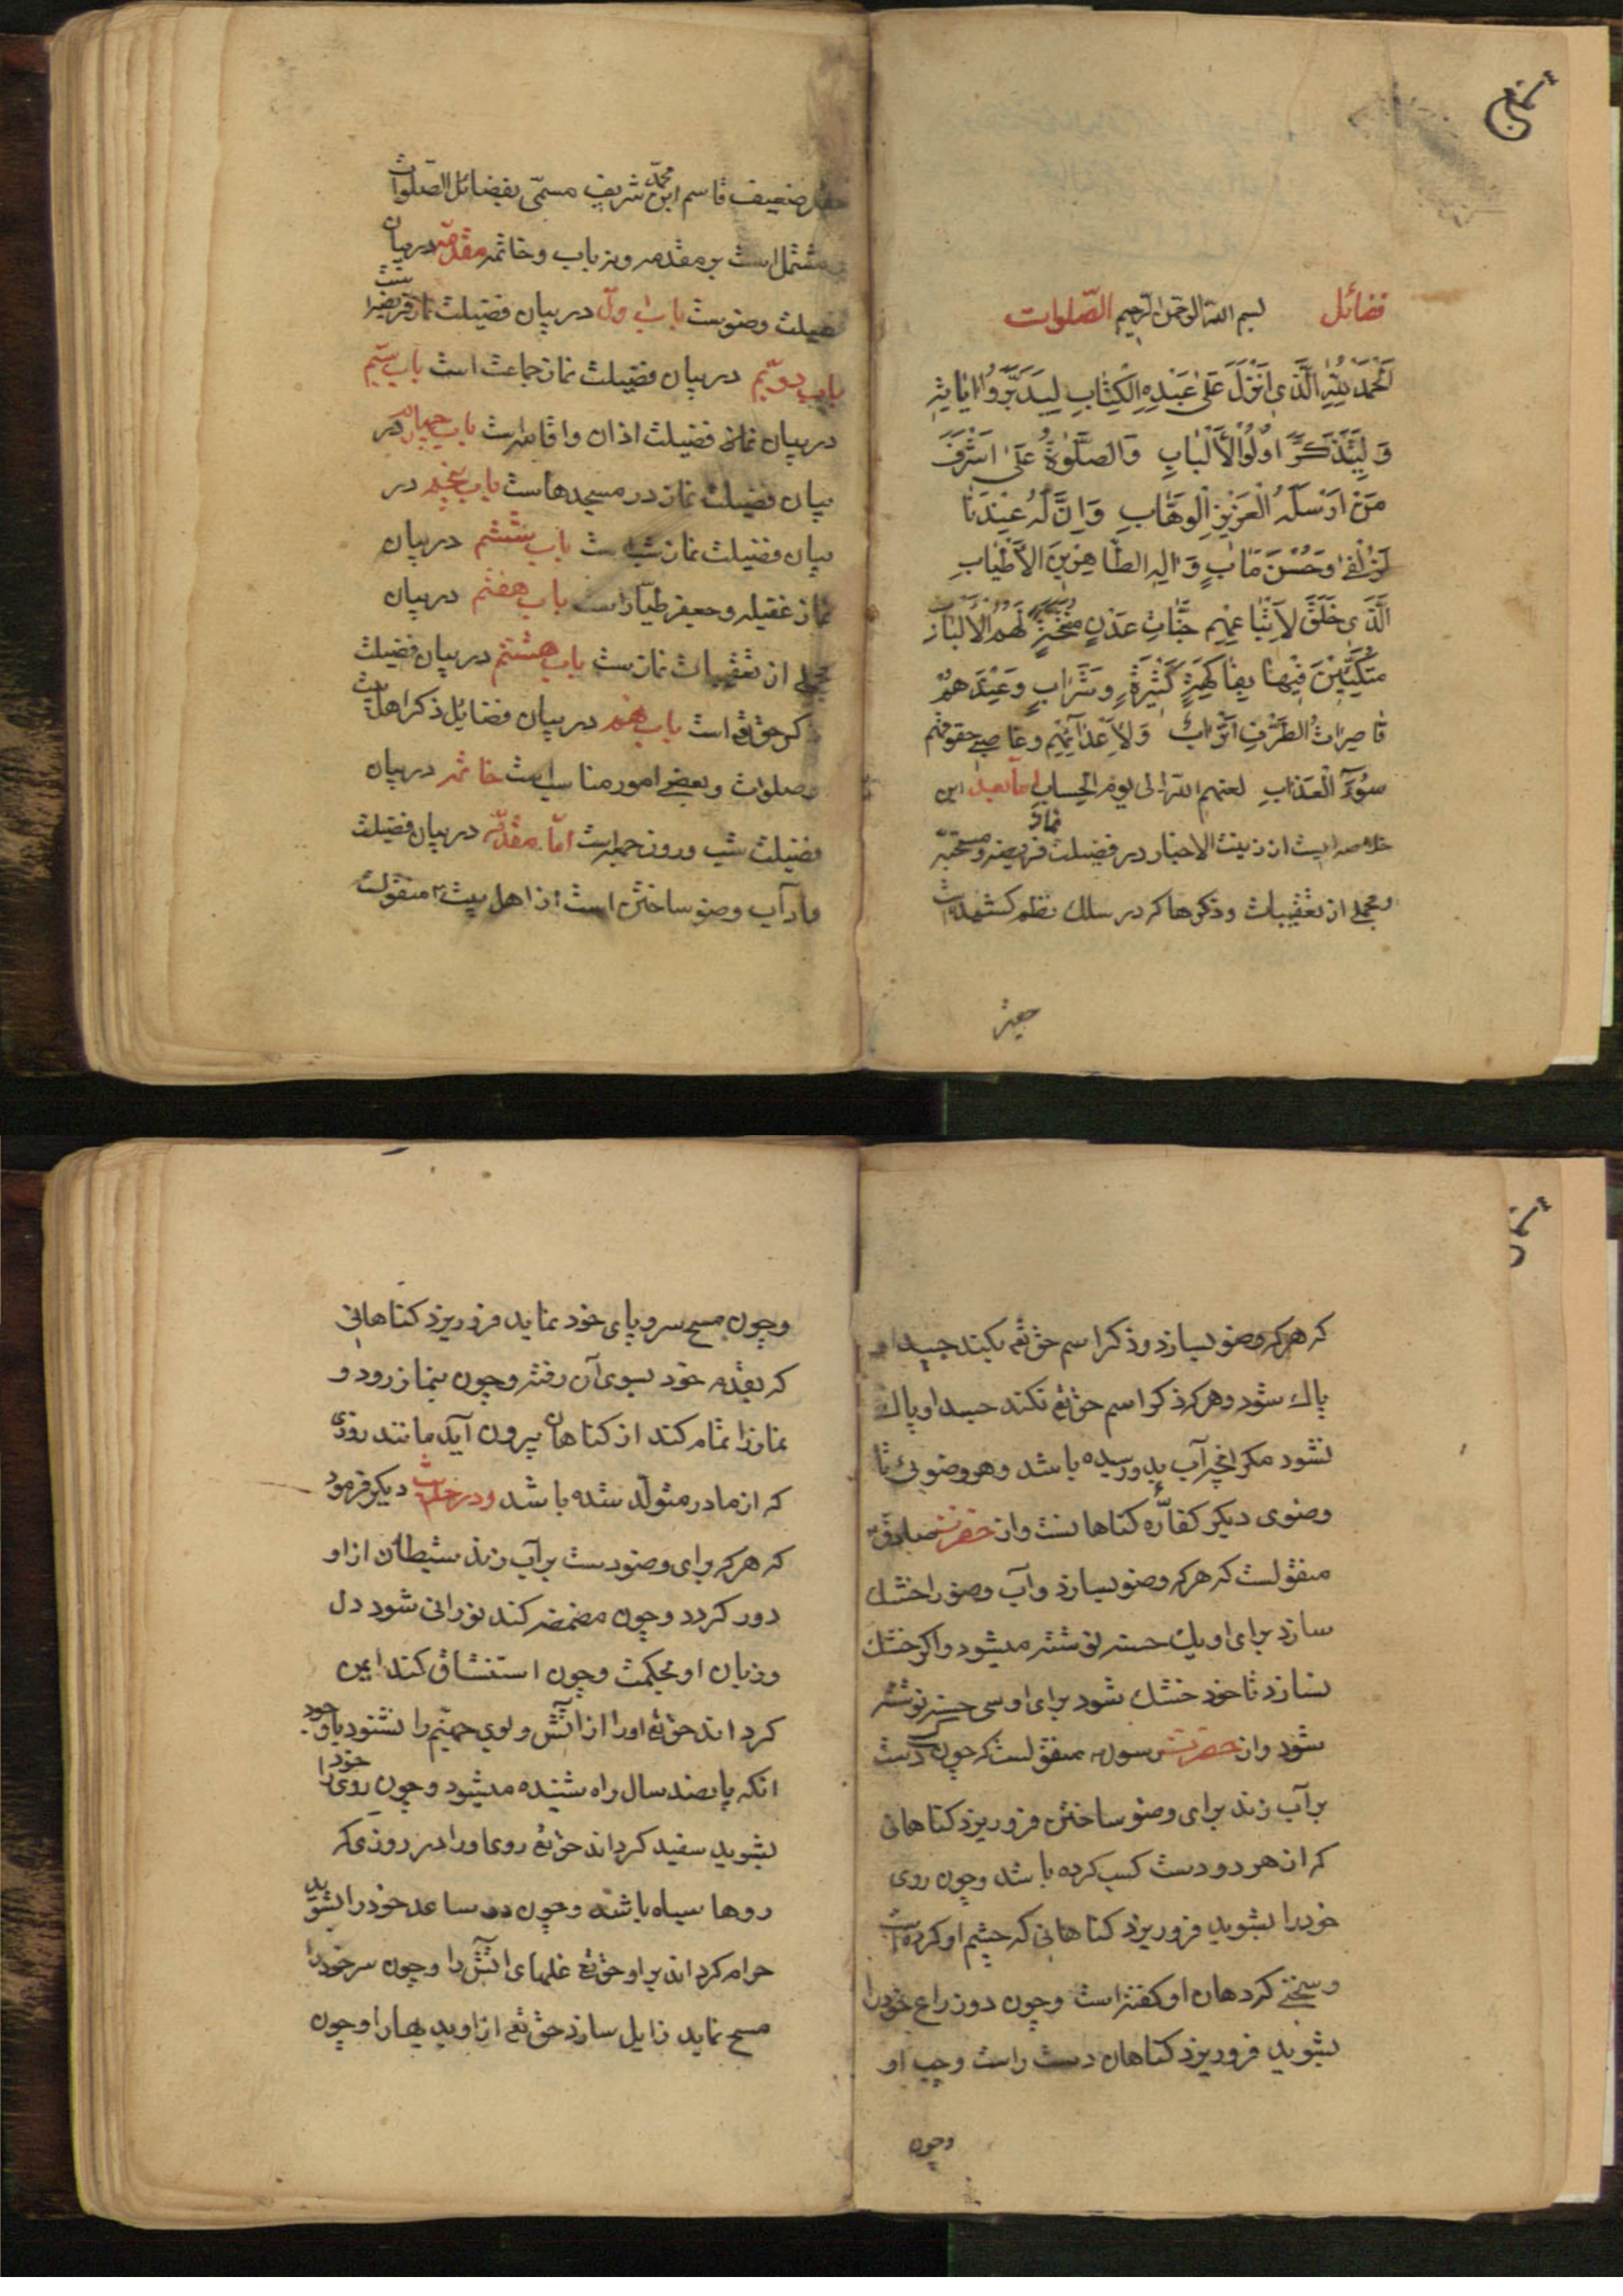 فضائل بسم الله الرحمن الرحیم الصّلوات
اَلْحَمْدُ لِلّٰهِ الَّذی اَنْزَلَ عَلیٰ عَبْدِهِ الْکِتٰابِ لِیَدَبَّرَوُا اٰیٰاتِهِ
وَ لِیَتَذَکَّرَ اُولُوا الْاَلْبٰابِ وَ الصَّلٰوةُ عَلیٰ اَشْرَفَ
مَنْ اَرْسَلَهُ الْعَزیزِ الْوَهّٰابِ وَ اِنَّ لَهُ عِنْدَنٰا
لَزُلْفیٰ وَ حُسْنَ مَاٰبٍ وَ اٰلِهِ الطّٰاهِرینَ الْاَطْیٰابِ
الَّذی خَلَقَ لِاَتْبٰاعِهِم جَنّٰاتِ عَدْنٍ مُفَتَّحَةً لَهُمُ الْاَبْوٰابُ
مُتَّکِئینَ فیهٰا بِفٰاکِهَةٍ کَثیرَةٍ وَ شَرٰابٍ وَ عِنْدَهُمْ
قٰاصِرٰاتُ الطَّرْفِ اَتْرٰابٌ وَ لِاَعْدٰائِهِم و غاصبی حقوقهم
سُوٓءَ الْعَذٰابِ لعنهم الله الی یوم الحساب اما بعد این
خلاصه ایست از زینت الاخبار در فضیلت نماز فریضه و مستحبّه
و مجملی از تعقیبات و ذکرها که در سلک نظم کشیده است
حقیر
حقیر ضعیف قاسم ابن محمّد شریف مسمّی بفضائل الصّلوات
مشتمل است بر مقدمه و نه باب و خاتمه مقدّمه در بیان
فضیلت وضوست باب اوّل در بیان فضیلت نماز فریضه است
باب دویّم در بیان فضیلت نماز جماعت است باب سیّم
در بیان فضیلت اذان و اقامه است باب چهارم در
بیان فضیلت نماز در مسجدهاست باب پنجم در
بیان فضیلت نماز شب است باب ششم در بیان
نماز غفیله و جعفر طیّار است باب هفتم در بیان
مجملی از تعقیبات نماز ست باب هشتم در بیان فضیلت
ذکر حق تع است باب نهم در بیان فضایل ذکر اهل بیت
و صلوات و بعضی امور مناسب است خاتمه در بیان
فضیلت شب و روز جمعه است امّا مقدّمه در بیان فضیلت
وارآب وضو ساختن است از اهل بیت ع منقولست
که هر که وضو بسازد و ذکر اسم حق تع بکند جسد او
پاک شود و هر که ذکر اسم حق تع نکند جسد او پاک
نشود مکر انچه آب بدو رسیده باشد و هر وضوئی تا
وضوی دیکر کفّاره کناهانست و از حضرت صادق
منقولست که هر که وضو بسازد و آب وضو را خشک
سازد برای او یک حسنه نوشته میشود و اکر خشک
نسازد تا خود خشک شود برای او سی حسنه نوشته
شود و از حضرت رسول منقولست که چون کسی دست
بر آب زند برای وضو ساختن فرو ریزد کناهانی
که از هر دو دست کسب کرده باشد و چون روی
خود را بشوید فرو ریزد کناهانی که چشم او کرده است
و سخنی که دهان او کفته است و چون دو ذراع خود را
بشوید فرو ریزد کناهان دست راست و چپ او
وچون
و چون مسح سر و پای خود نماید فرو ریزد کناهانی
که بقدم خود بسوی آن رفته و چون بنماز رود و
نماز را تمام کند از کناهان بیرون آید مانند روزی
که از مادر متولّد شده باشد و در حدیث دیکر فرمود
که هر که برای وضو دست بر آب زند شیطان از او
دور کردد و چون مضمضه کند نورانی شود دل
و زبان او بحکمت و چون استنشاق کند ایمن
کرداند حق تع او را از آتش و بوی جهنّم را نشنود با وجود
انکه پانصد سال راه شنیده میشود و چون روی خود را
بشوید سفید کرداند حق تع روی او را در روزی که
روها سیاه باشد و چون دو ساعد خود را بشوید
حرام کرداند بر او حق تع غلهای آتش را و چون سر خود را
مسح نماید زایل سازد حق تع از او بدیهٰا را و چون